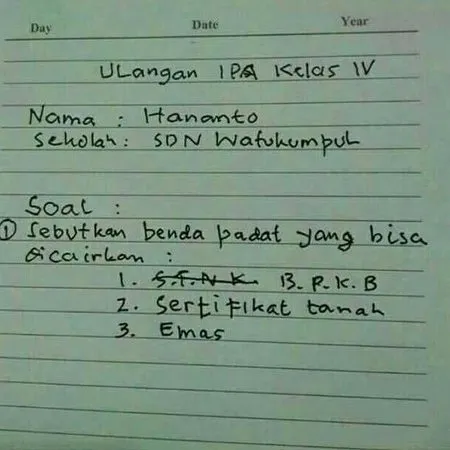 Day Date Year
ULangan IPA Kelas IV
Nama : Hananto
Sekolah : SDN Watukumpul
Soal :
① Sebutkan benda padat yang bisa
dicairkan :
1. S.T.N.K. B.P.K.B
2. Sertifikat tanah
3. Emas